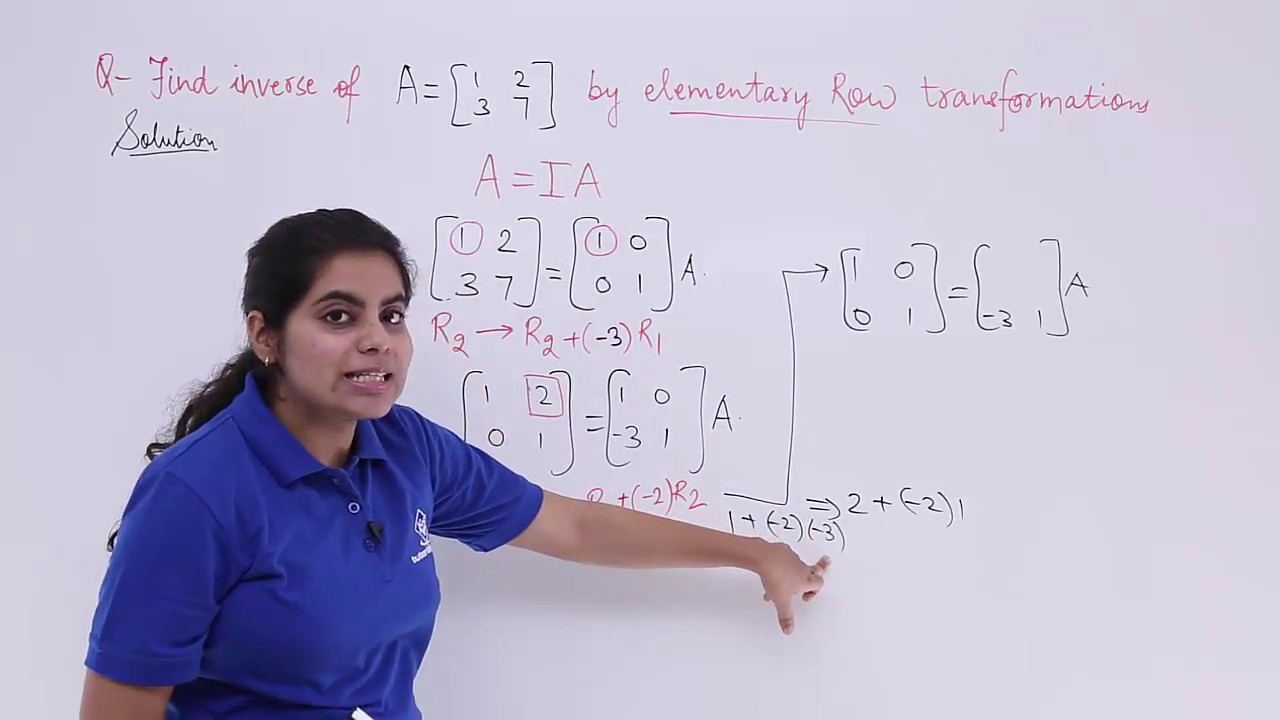 Q- Find inverse of A = [1 2
3 7] by elementary Row transformations
Solution
A = I A
[1 2
3 7] = [1 0
0 1] A.
R₂ → R₂ + (-3) R₁
[1 2
0 1] = [1 0
-3 1] A.
+(-2)R₂
1 + (-2)(-3)
⇒ 2 + (-2) 1
→ [1 0
0 1] = [
-3 1] A